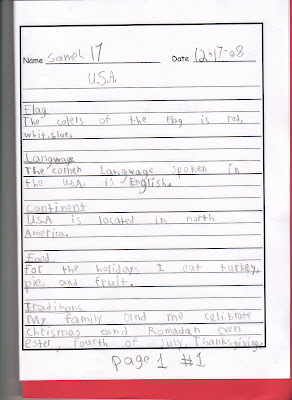 Name Sameh 17 Date 12-17-08
U.S.A.
Flag
The colers of the flag is red,
whit,blue.
Language
The comen Language spoken in
the U.S.A. is English.
Continent
U.S.A is located in north
America.
Food
for the holidays I eat turkey,
pie, and fruit.
Traditons
My family and me celibrate
chtismas and Romadan even
ester, fourth of July, Thanksgiving.
page 1 #1